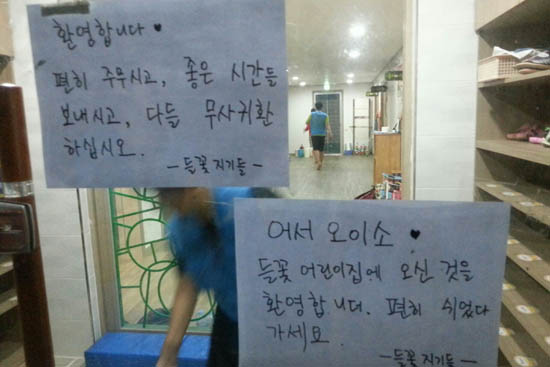 환영합니다 ♥
편히 주무시고, 좋은 시간들
보내시고, 다들 무사귀환
하십시오.
- 들꽃 지기들 -
어서 오이소 ♥
들꽃 어린이집에 오신 것을
환영합니다. 편히 쉬었다
가세요.
- 들꽃 지기들 -